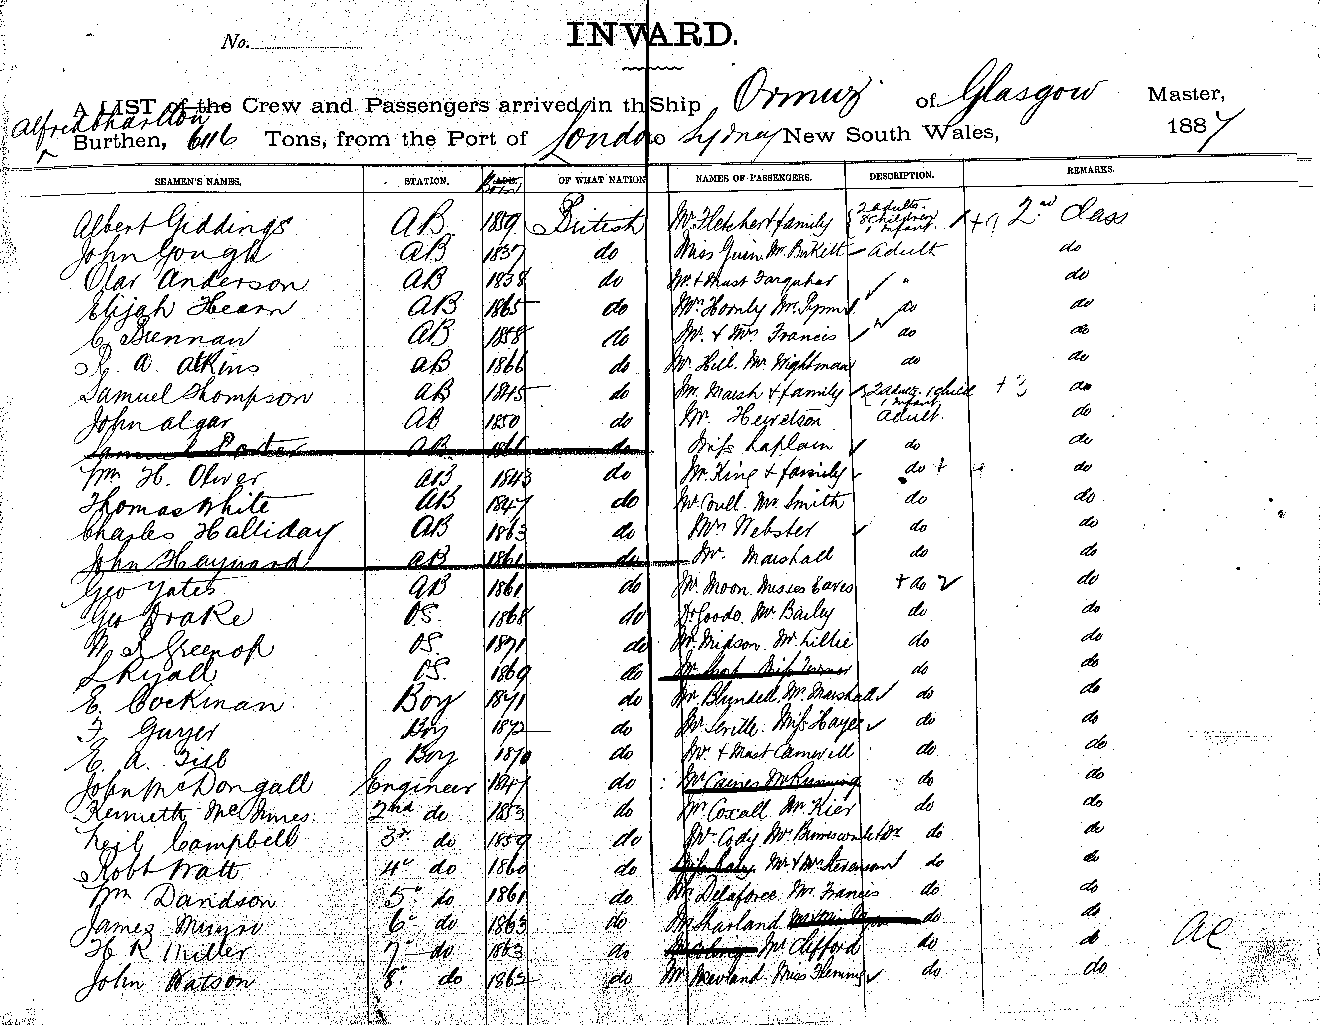 No.
INWARD.
A LIST of the Crew and Passengers arrived in th Ship Ormuz of Glasgow Master,
Alfred Charlton
Burthen, 6116 Tons, from the Port of London to Sydney New South Wales, 1887
SEAMEN'S NAMES. STATION. OF WHAT NATION NAMES OF PASSENGERS. DESCRIPTION. REMARKS.
Albert Giddings AB 1859 British Mr Fletcher & family 2 adults 8 children 1 infant + 9 2nd Class
John Gough AB 1837 do Miss Quin Mr Birkett Adult do
Olar Anderson AB 1838 do Mr & Mast Farquhar " do
Elijah Hearn AB 1865 do Mrs Hornby Mr Pym do do
C. Brennan AB 1858 do Mr. & Mrs Francis do do
R. A. Atkins AB 1866 do Mr Hill. Mr Wightman do do
Samuel Thompson AB 1845 do Mr Marsh & family 2 adults 1 child 1 infant + 3 do
John Algar AB 1850 do Mr. Hewetson Adult. do
Samuel Porter AB 1866 do Miss Laplain do do
Wm H. Oliver AB 1843 do Mr King & family do + do
Thomas White AB 1847 do Mr Coull Mr Smith do do
Charles Halliday AB 1863 do Mrs Webster do do
John Hayward AB 1861 do Mr. Marshall do do
Geo Yates AB 1861 do Mr Moon Misses Eaves + do 2 do
Geo Drake OS. 1868 do Mr Bailey do do
W. S. Greenop OS. 1871 do Mr Midson Mr Lillie do do
S Ryall OS. 1869 do Miss Turner do do
E. Cockman Boy 1871 do Mr Blundell Mr Marshall do do
F. Guyer Boy 1872 do Mr Seville. Miss Hayes do do
E. A. Gill Boy 1870 do Mr & Mast Camervill do do
John McDongall Engineer 1847 do Mr Caines Mr Running do do
Kenneth McInnes 2nd do 1853 do Mr Coxall Mr Kier do do
Neil Campbell 3rd do 1859 do Mr Cody Mr do do
Robt Watt 4" do 1860 do Mr & Mrs Stevenson do do
Wm Davidson 5" do 1861 do Mr Delaforce Mr Francis do do
James Munro 6" do 1863 do Mr Sharland do do
H R Miller 7" do 1863 do Mr Clifford do do
John Watson 8" do 1862 do Mr Newland Miss Fleming do do